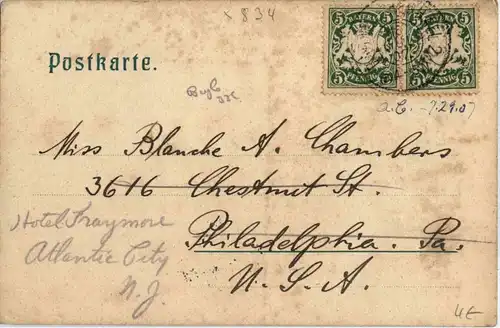 x 834
BAYERN BAYERN
5 5 5 5
PFENNIG PFENNIG
Postkarte.
a.C. - 7.29.07
Miss Blanche A. Chambers
3616 Chestnut St.
Philadelphia. Pa.
U. S. A.
Hotel Traymore
Atlantic City
N. J.
4€